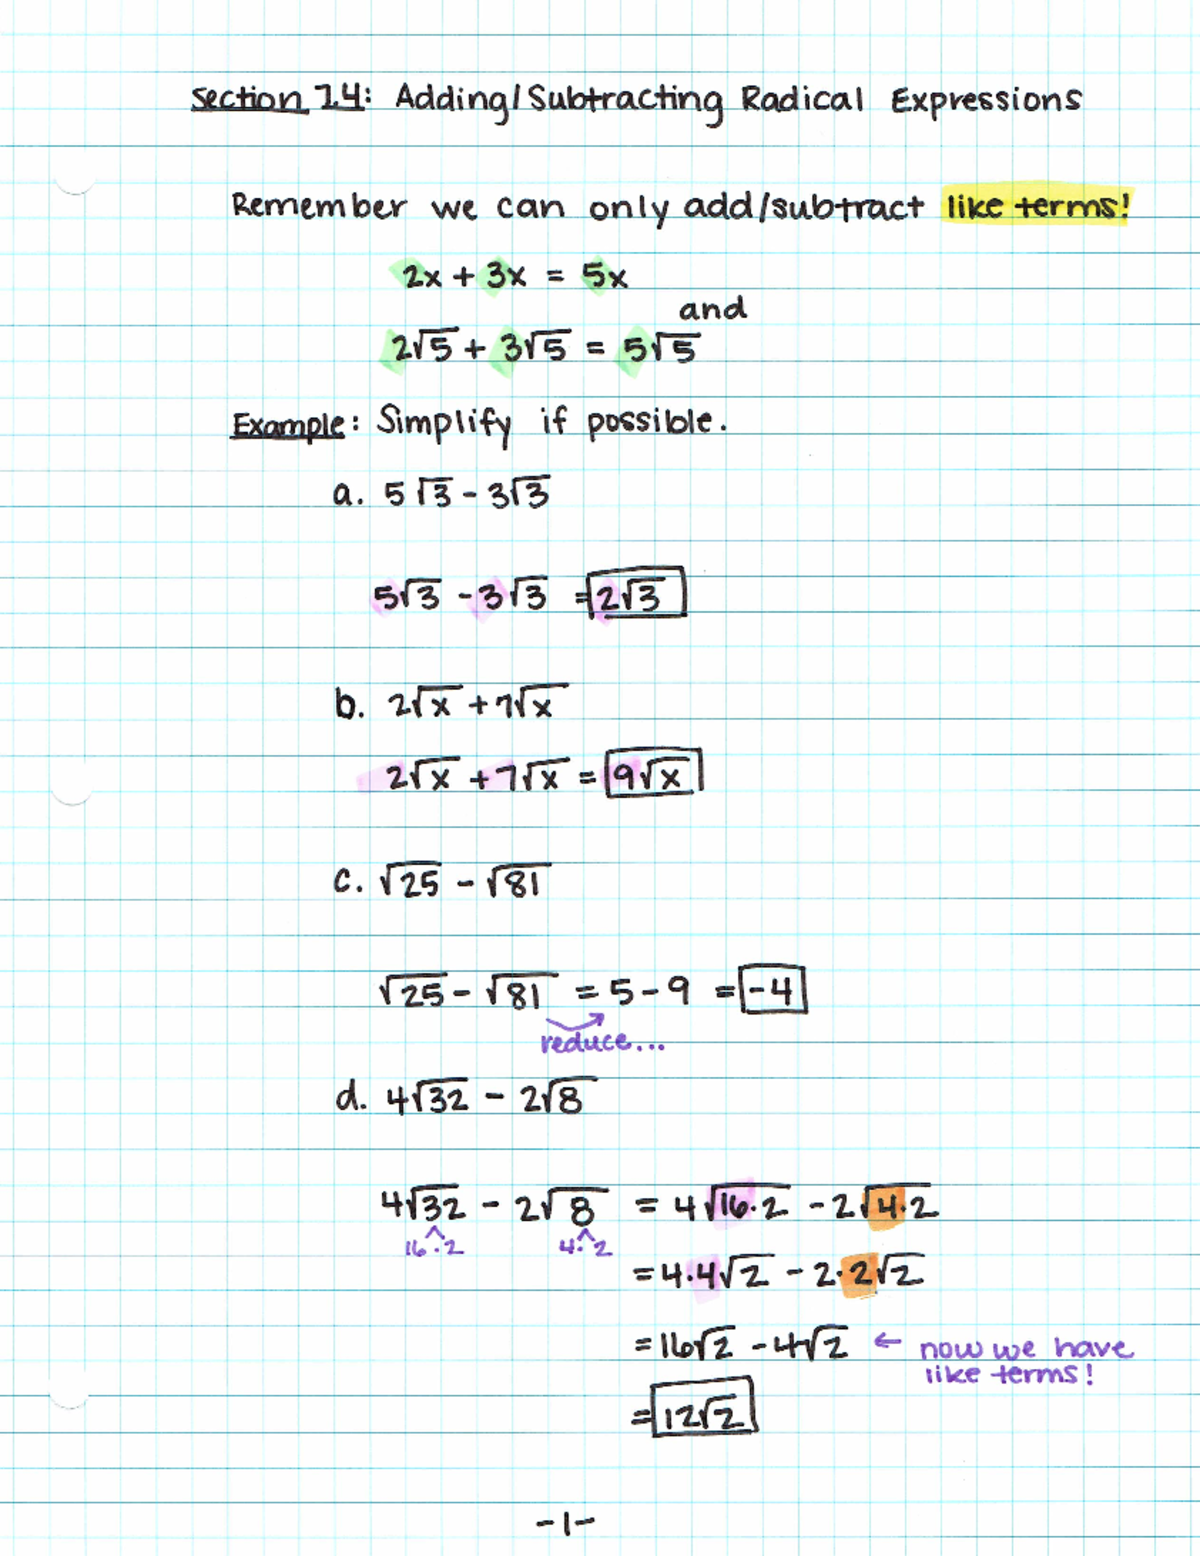 Section 7.4: Adding/Subtracting Radical Expressions
Remember we can only add/subtract like terms!
2x + 3x = 5x
and
2√5 + 3√5 = 5√5
Example: Simplify if possible.
a. 5√3 - 3√3
5√3 - 3√3 = 2√3
b. 2√x + 7√x
2√x + 7√x = 9√x
c. √25 - √81
√25 - √81 = 5 - 9 = -4
reduce...
d. 4√32 - 2√8
4√32 - 2√8 = 4√16·2 - 2√4·2
16·2 4·2
= 4·4√2 - 2·2√2
= 16√2 - 4√2 ← now we have
like terms!
= 12√2
-1-